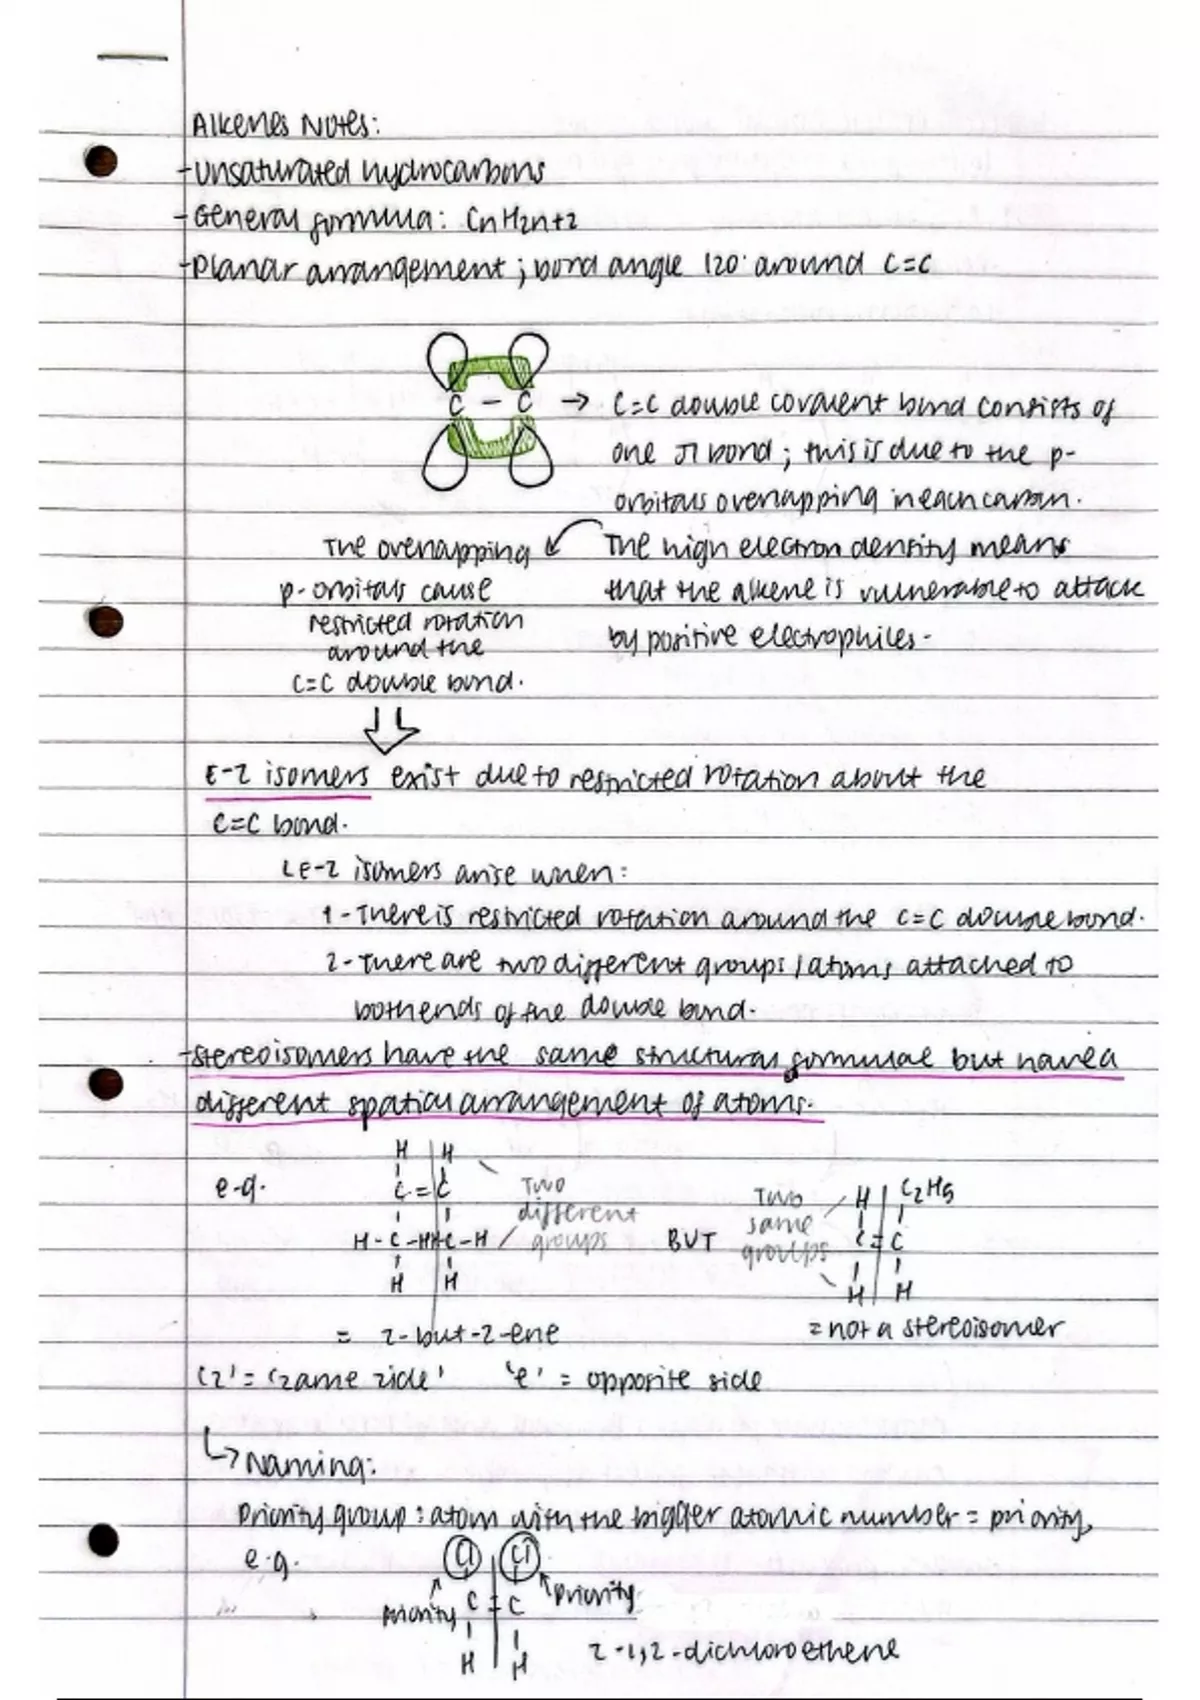 Alkenes Notes:
-Unsaturated hydrocarbons
-General formula: CnH2n+2
-Planar arrangement; bond angle 120° around C=C
C - C → C=C double covalent bond consists of
one π bond; this is due to the p-
orbitals overlapping in each carbon.
The overlapping
p-orbitals cause
restricted rotation
around the
C=C double bond.
The high electron density means
that the alkene is vulnerable to attack
by positive electrophiles.
E-Z isomers exist due to restricted rotation about the
C=C bond.
E-Z isomers arise when:
1-There is restricted rotation around the C=C double bond.
2-There are two different groups/atoms attached to
both ends of the double bond.
-Stereoisomers have the same structural formulae but have a
different spatial arrangement of atoms.
e.g.
H H
C=C
H-C-H H-C-H
H H
Two
different
groups
BUT
Two
same
groups
H C2H5
C=C
H H
= Z-but-2-ene
= not a stereoisomer
'Z' = 'Zame Zide' 'E' = opposite side
↳ Naming:
Priority group: atom with the bigger atomic number = priority,
e.g.
Cl Cl
priority C=C priority
H H
Z-1,2-dichloroethene